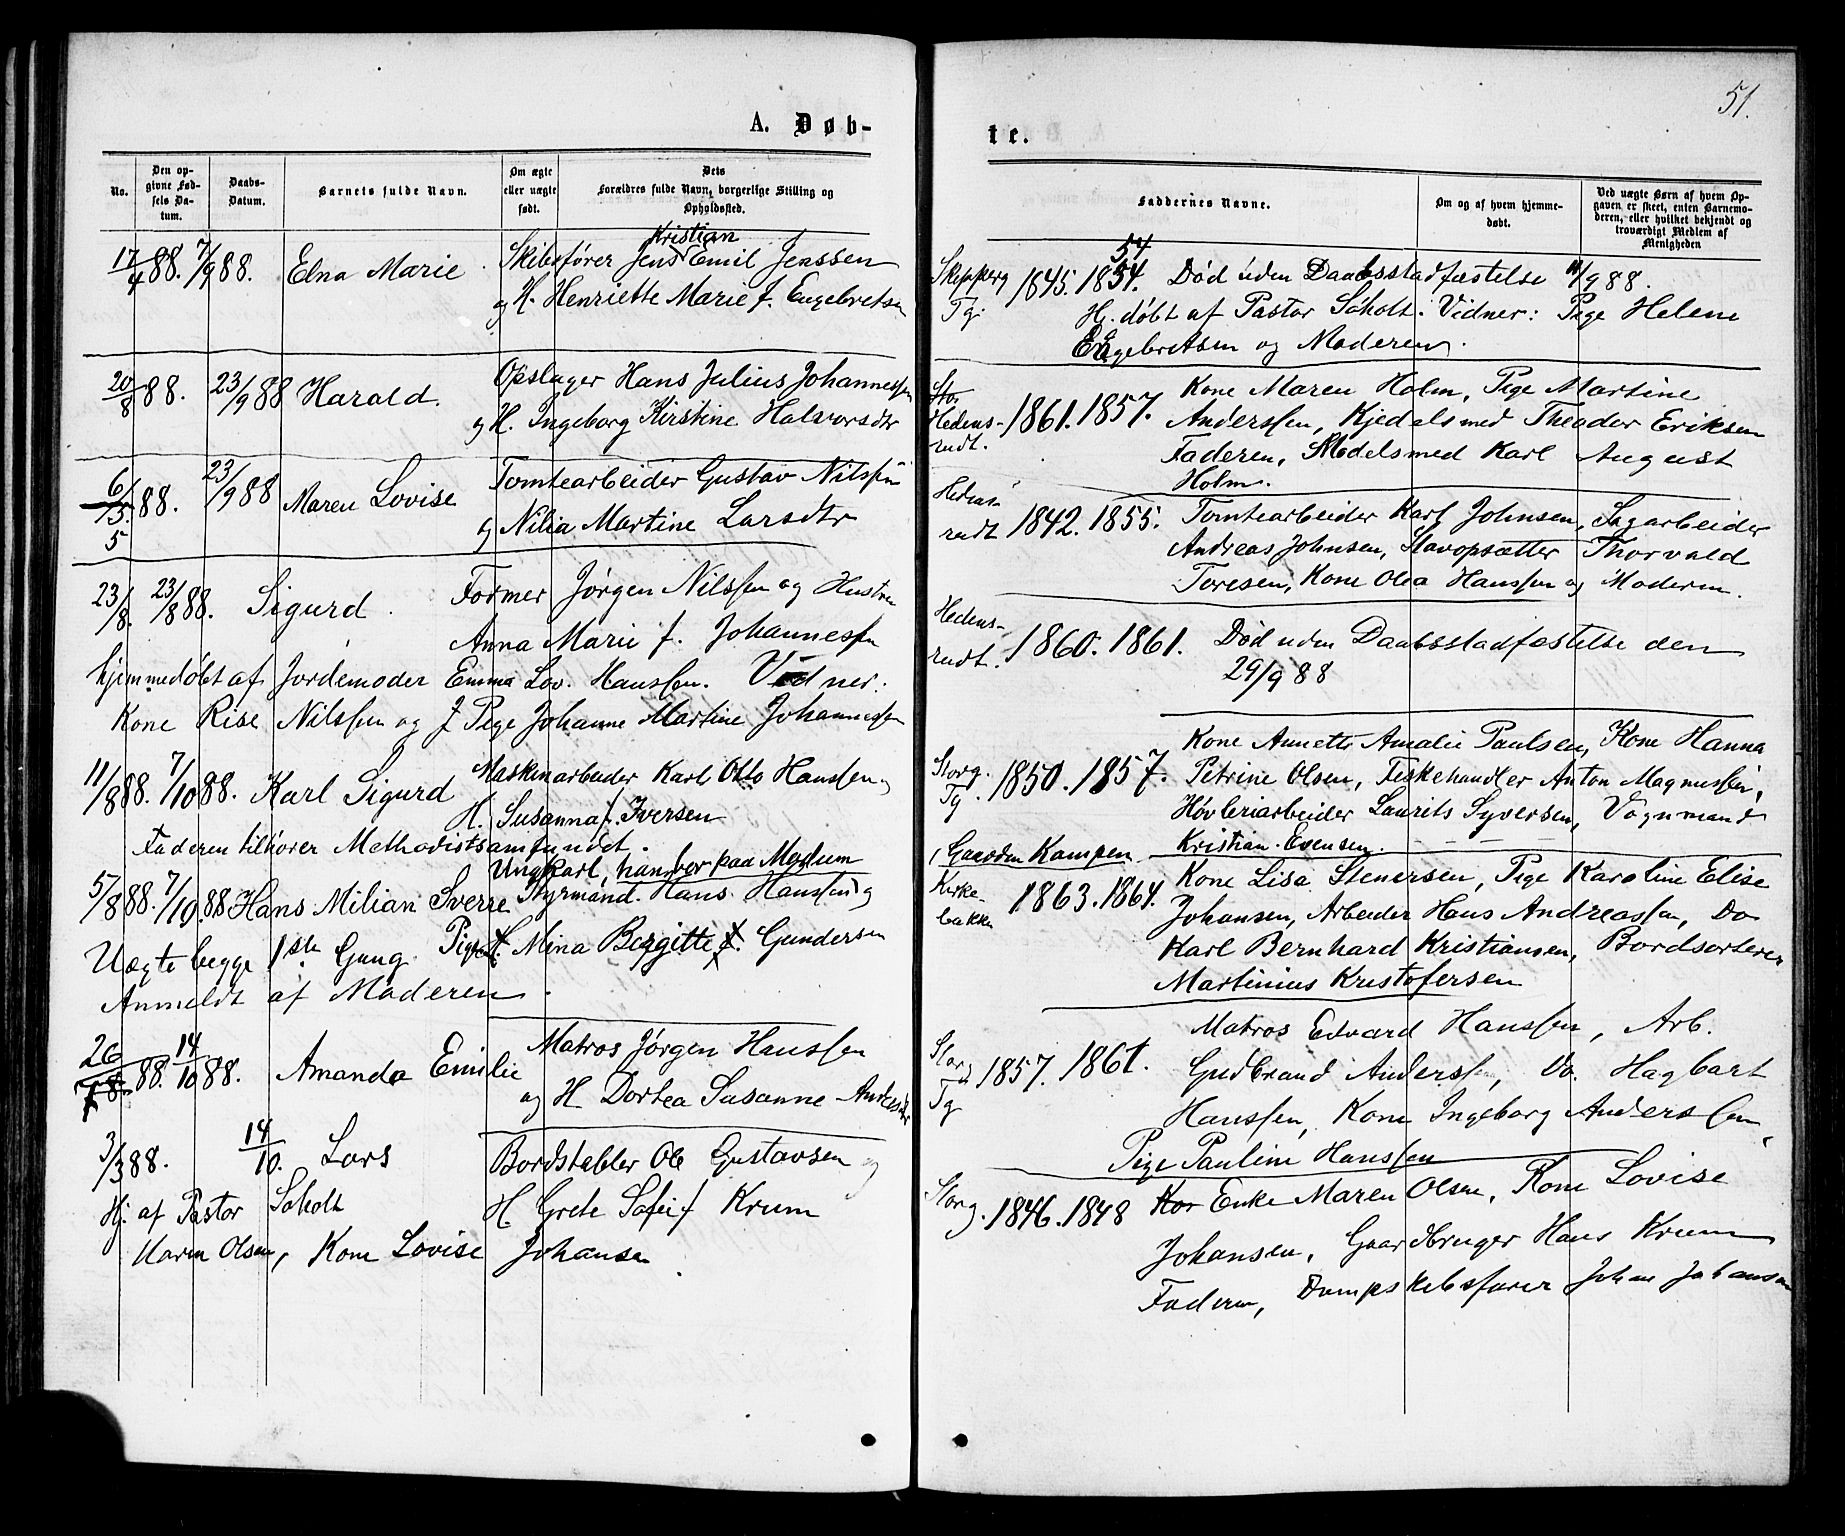 51.
A. Døb-
te.
No.
Den op-
givne Fød-
sels Da-
tum.
Daabs-
Datum.
Barnets fulde Navn.
Om ægte
eller uægte
født.
Dets
Forældres fulde Navn, borgerlige Stilling og
Opholdssted.
Faddernes Navne.
Om og af hvem hjemme-
døbt.
Ved uægte Børn af hvem Op-
gaven er skeet, enten Barnemo-
deren, eller hvilket bekjendt og
troværdigt Medlem af
Menigheden
Kristian
17/4 88. 7/9 88. Elna Marie Skibsfører Jens Emil Jenssen
og H. Henriette Marie f. Engebretsen
54.
Skipperg 1845. 1854. Død uden Daabsstadfæstelse 11/9 88.
Tg. Hj. døbt af Pastor Søholt. Vidner: Pige Helene
Engebretsen og Moderen.
20/8 88. 23/9 88 Harald. Opslager Hans Julius Johannessen
og H. Ingeborg Kirstine Halvorsdtr
Stor Kone Maren Holm, Pige Martine
Hedens- 1861. 1857. Anderssen, Kjedelsmed Theodor Eriksen
rudt. Faderen, Kjedelsmed Karl August
Holm.
6/5 88. 23/9 88 Maren Lovise Tomtearbeider Gustav Nilssen
5 og Nilia Martine Larsdtr
Hedens-
rudt 1842. 1855. Tomtearbeider Karl Johnsen, Sagarbeider
Andreas Johnsen, Stavopsætter Thorvald
Toresen, Kone Olea Hanssen og Moderen.
23/8. 23/8 88. Sigurd. Former Jørgen Nilssen og Hustru
Anna Marie f. Johannessen
hjemmedøbt af Jordemoder Emma Lov. Hanssen. Vidner:
Kone Rise Nilssen og Pige Johanne Martine Johannessen
Hedens-
rudt. 1860. 1861. Død uden Daabsstadfæstelse den
29/9 88
11/8 88. 7/10 88. Karl Sigurd Maskinarbeider Karl Otto Hanssen og
H. Susanna f. Iversen
Faderen tilhører Methodistsamfundet.
Kone Annette Amalie Paulsen, Kone Hanna
Storg. 1850. 1857. Petrine Olsen, Fiskehandler Anton Magnussen,
Tg. Høvleriarbeider Laurits Syversen, Vognmand
Kristian Evensen.
Ungkarl, han bor paa Modum
5/8 88. 7/10. 88 Hans Milian Sverre Styrmand. Hans Hanssen og
Uægte begge 1ste Gang. Pige H. Mina Bergitte f. Gundersen
Anmeldt af Moderen.
Gaarden Kampen
Kirke- 1863. 1864. Kone Lisa Stenersen, Pige Karoline Elise
bakke Johansen, Arbeider Hans Andreassen, Do
Karl Bernhard Kristiansen, Bordsorterer
Martinius Kristofersen
26/8 88. 14/10 88. Amanda Emilie Matros Jørgen Hanssen
og H Dortea Susanne Andersdtr
Matros Edvard Hanssen, Arb.
Storg 1857. 1861. Gudbrand Anderssen, Do. Hagbart
Tg Hanssen, Kone Ingeborg Anderssen,
Pige Pauline Hanssen
3/3 88. 14/10. Lars Bordstabler Ole Gustavsen og
Hj. af Pastor Søholt H Grete Sofie f Krum
Maren Olsen, Kone Lovise Johansen.
Storg. 1846. 1848 Kon Enke Maren Olsen, Kone Lovise
Johansen, Gaardbruger Hans Krum
Faderen, Dampskibsfører Johan Johansen